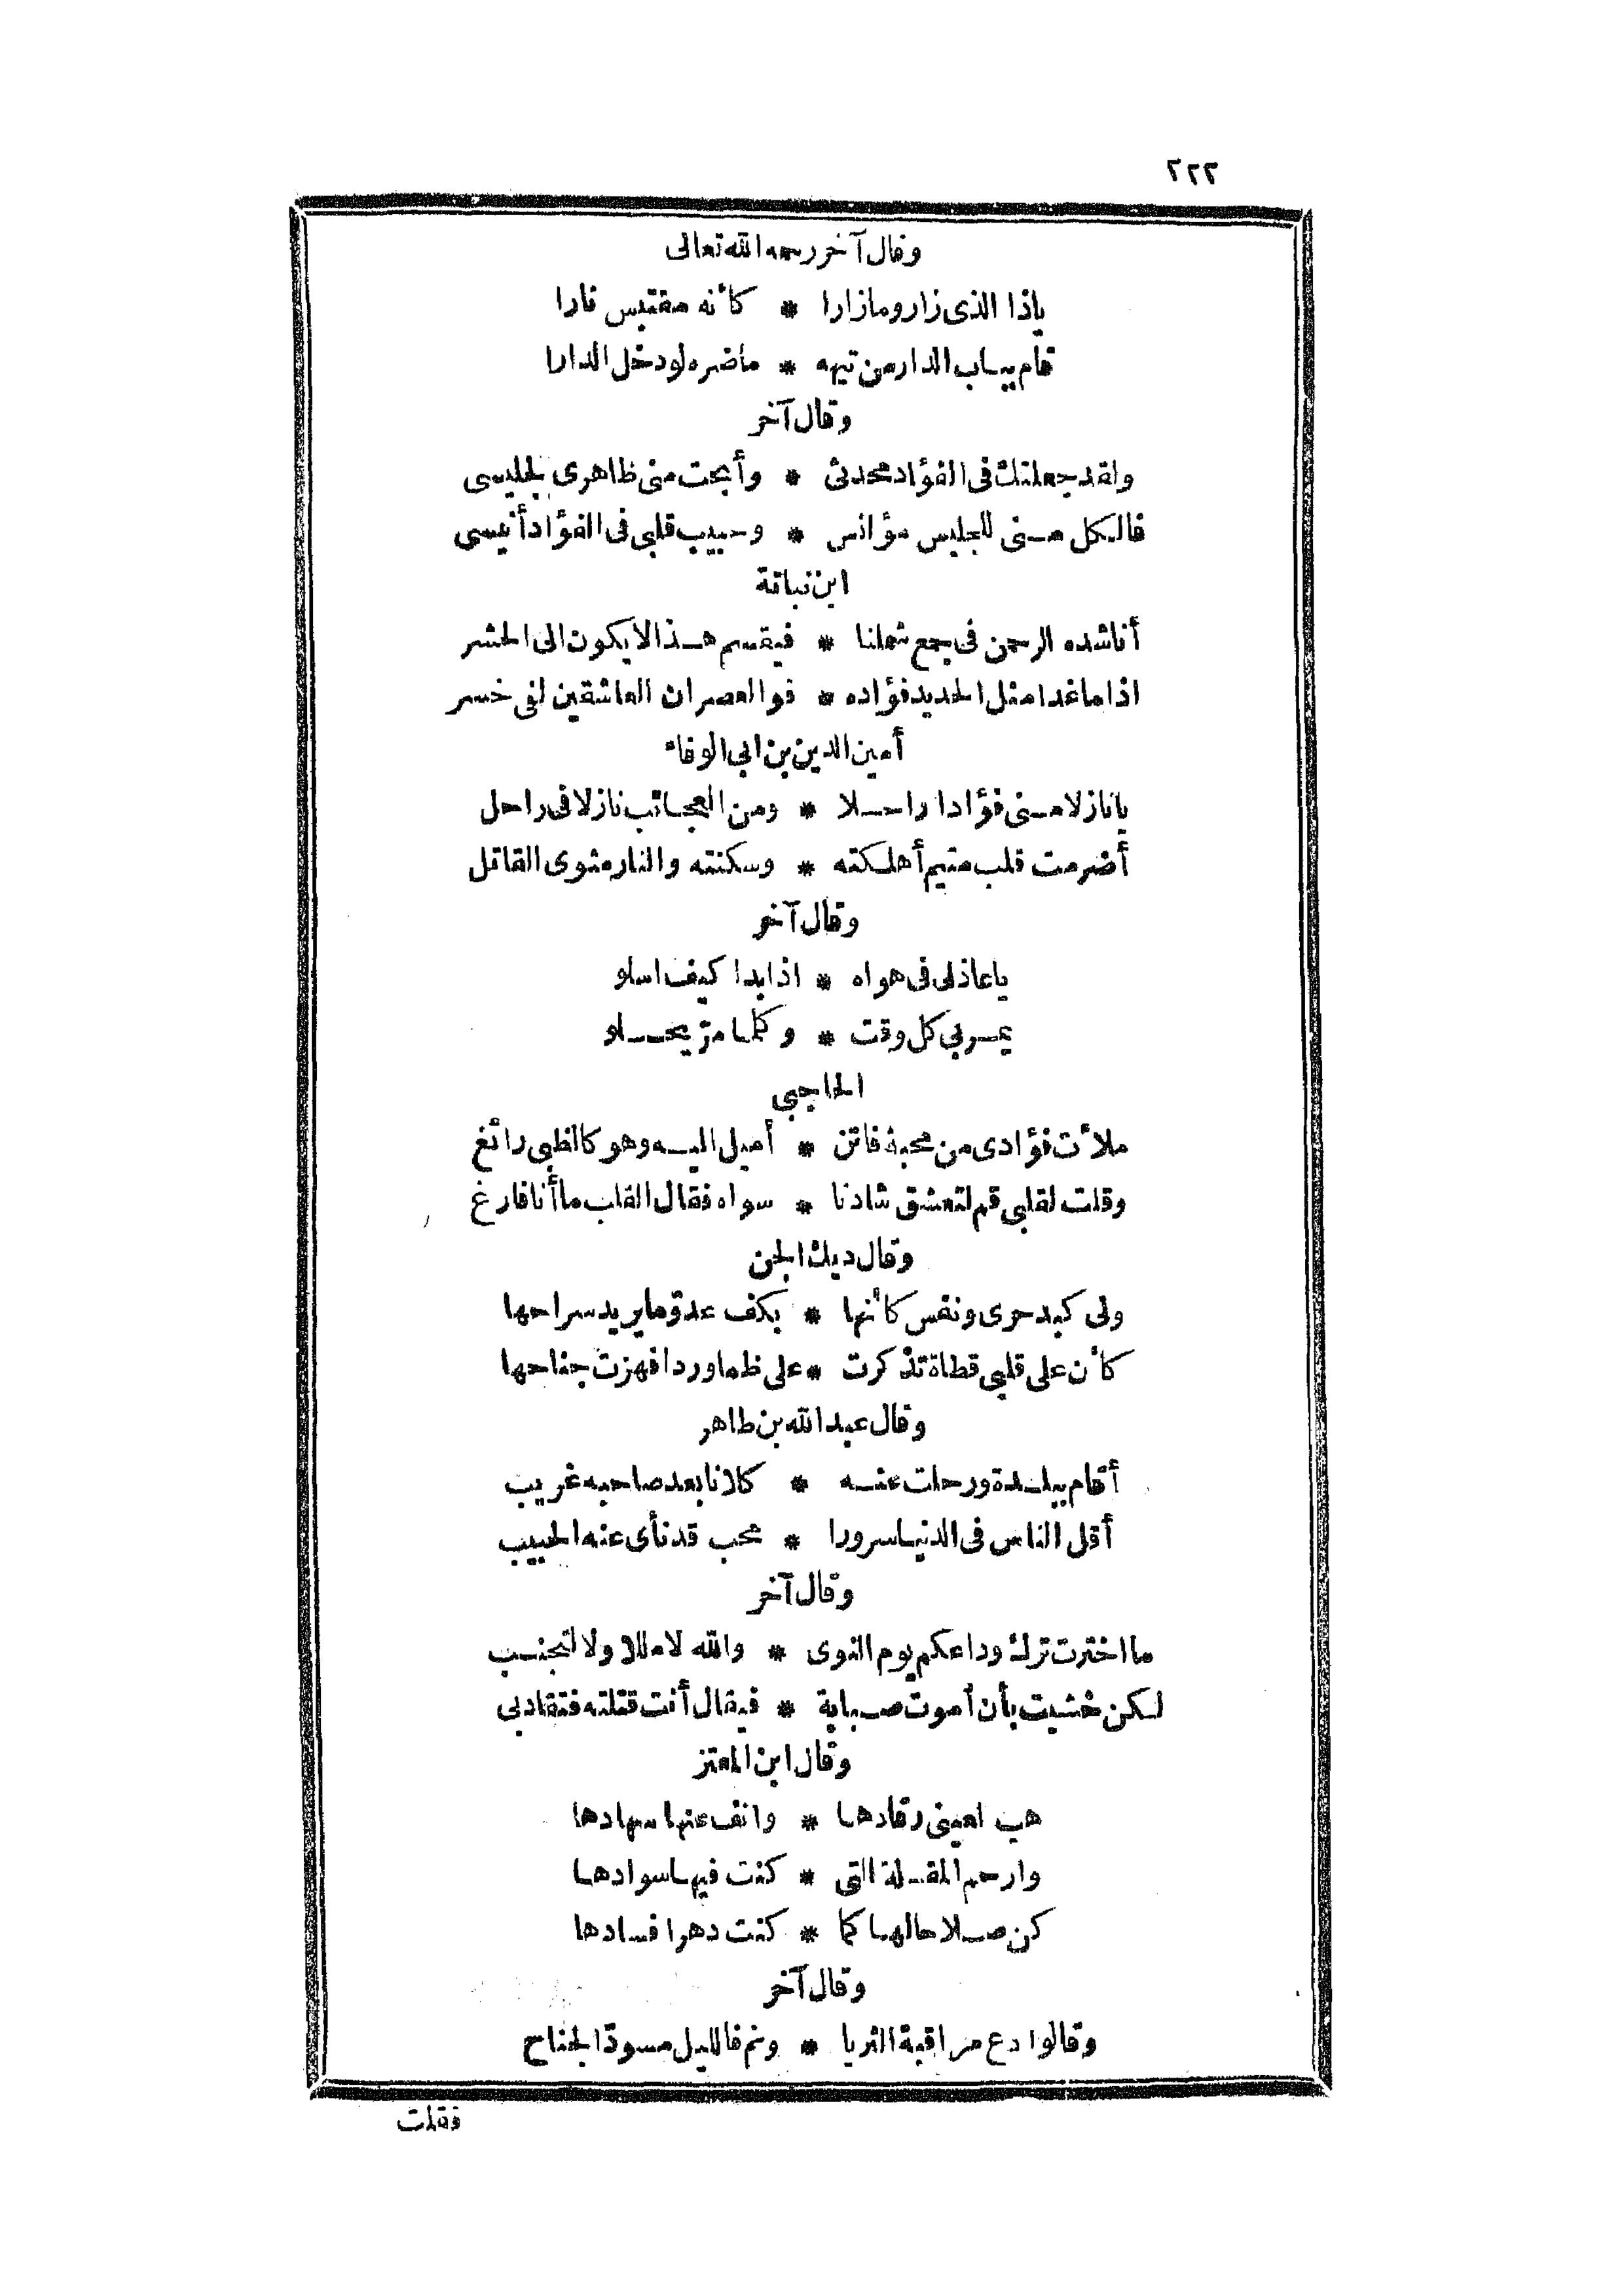 ٢٢٢
وقال آخر رحمه الله تعالى
ياذا الذى زار ومازارا * كأنه مقتبس نارا
قام بباب الدار من تيهه * ماضره لو دخل الدارا
وقال آخر
ولقد جعلتك فى الفؤاد محدثى * وأبحت منى ظاهرى لجليسى
فالكل منى للجليس مؤانس * وحبيب قلبى فى الفؤاد أنيسى
ابن نباتة
أناشده الرحمن فى جمع شملنا * فيقسم هذا لايكون الى الحشر
اذا ماغدا مثل الحديد فؤاده * فوالعصر ان العاشقين لفى خسر
أمين الدين بن ابى الوفاء
يانازلا منى فؤادا راحلا * ومن العجائب نازلا فى راحل
أضرمت قلب متيم أهلكته * وسكنته والنار مثوى القاتل
وقال آخر
ياعاذلى فى هواه * اذا بدا كيف اسلو
يمر بى كل وقت * وكلما مرّ يحلو
الحاجبى
ملأت فؤادى من محبة فاتن * أميل اليه وهو كالظبى رائغ
وقلت لقلبى قم لتعشق شادنا * سواه فقال القلب ما أنا فارغ
وقال ديك الجن
ولى كبد حرى ونفس كأنها * بكف عدوّ مايريد سراحها
كأن على قلبى قطاة تذكرت * على ظما وردا فهزت جناحها
وقال عبد الله بن طاهر
أقام ببلدة ورحلت عنه * كلانا بعد صاحبه غريب
أقل الناس فى الدنيا سرورا * محب قد نأى عنه الحبيب
وقال آخر
ما اخترت ترك وداعكم يوم النوى * والله لا مللا ولا لتجنب
لكن خشيت بأن أموت صبابة * فيقال أنت قتلته فتقادبى
وقال ابن المعتز
هب لعينى رقادها * وانف عنها سهادها
وارحم المقلة التى * كنت فيها سوادها
كن صلاحا لها كما * كنت دهرا فسادها
وقال آخر
وقالوا دع مراقبة الثريا * ونم فالليل مسودّ الجناح
فقلت